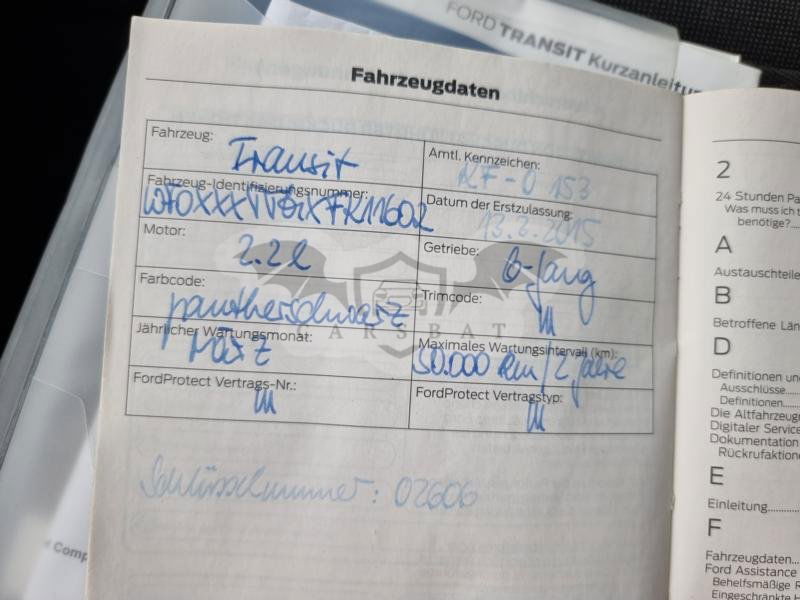 FORD TRANSIT Kurzanleitu
Fahrzeugdaten
Fahrzeug:
Transit
Amtl. Kennzeichen:
153
Fahrzeug-Identifizierungsnummer:
Datum der Erstzulassung:
13.2.2015
Motor:
2.2l
Getriebe:
6-Gang
Farbcode:
pantherschwarz
Trimcode:
CARSBAT
Jährlicher Wartungsmonat:
März
Maximales Wartungsintervall (km):
50.000 km/2 Jahre
FordProtect Vertrags-Nr.:
FordProtect Vertragstyp:
Schlüsselnummer: 02606
2
24 Stunden Pa
Was muss ich t
benötige?
A
Austauschteile
B
Betroffene Län
D
Definitionen und
Ausschlüsse
Definitionen
Die Altfahrzeug
Digitaler Service
Dokumentation
Rückrufaktion
E
Einleitung
F
Fahrzeugdaten
Ford Assistance
Behelfsmäßige R
Eingeschränkte H
Comp